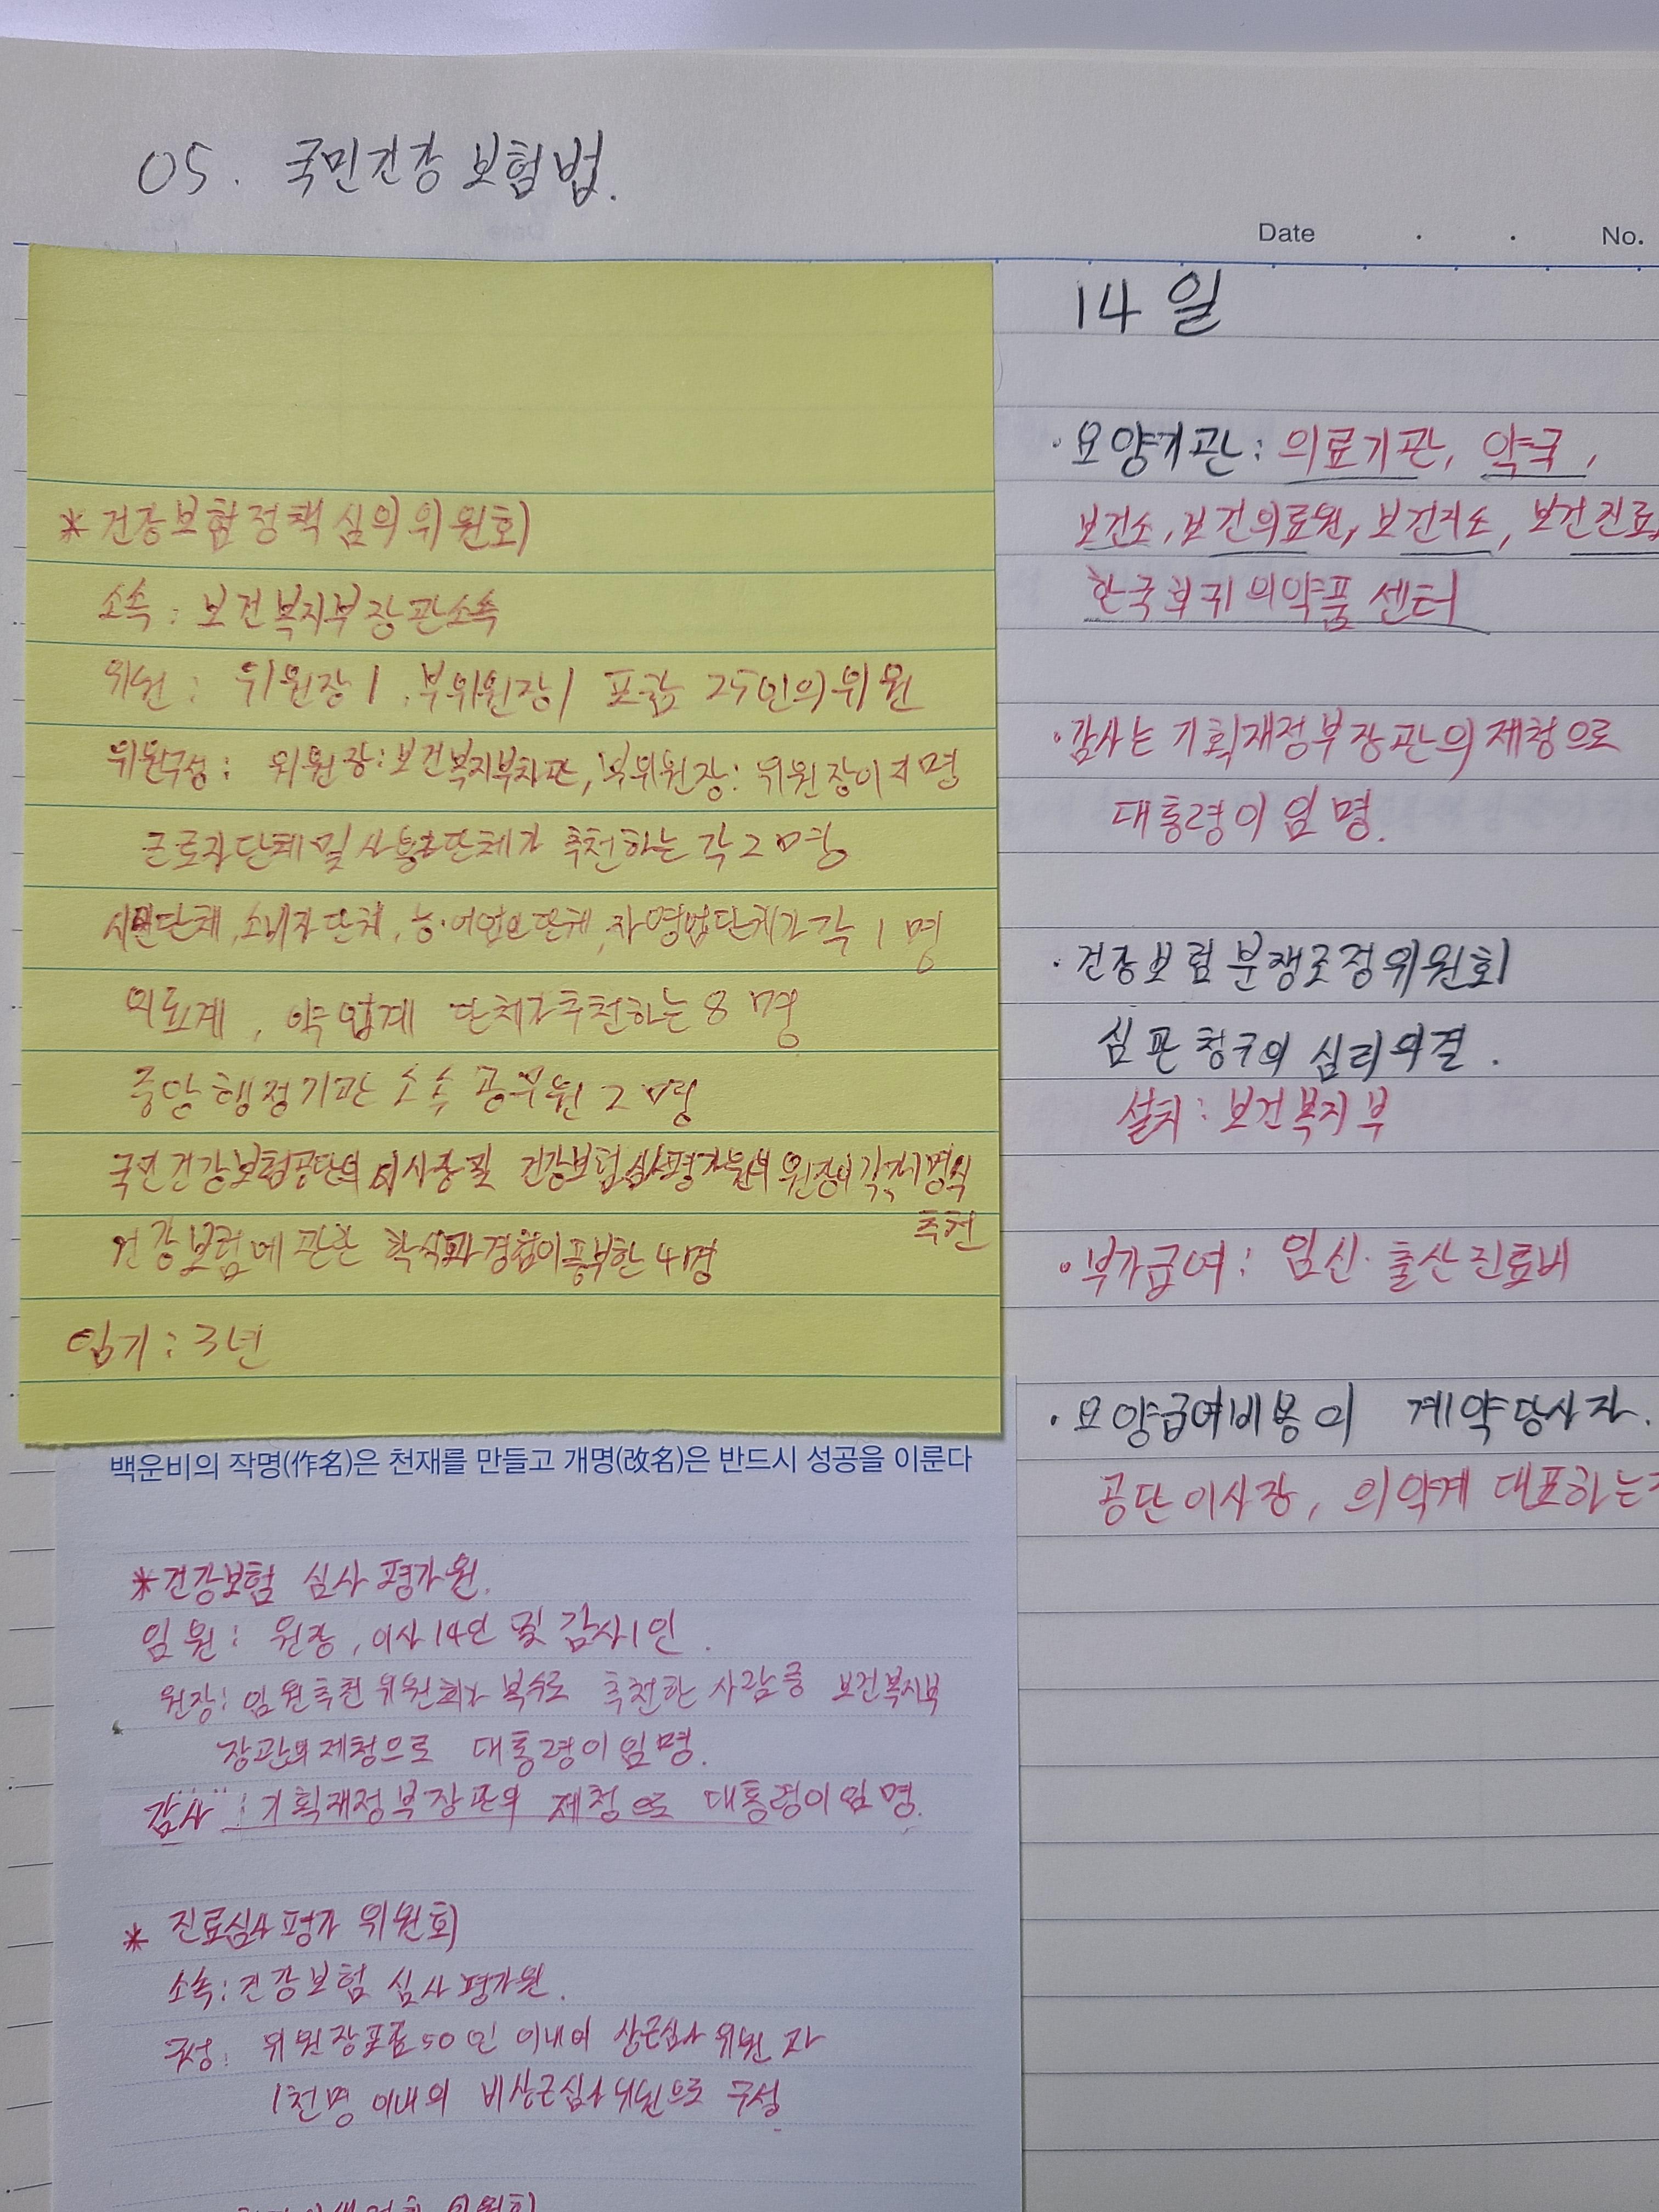 05. 국민건강보험법.
Date . . No.
*건강보험정책심의위원회
소속 : 보건복지부장관소속
위원 : 위원장1, 부위원장1 포함 25인의 위원
위원구성 : 위원장:보건복지부차관, 부위원장: 위원장이 지명
근로자단체 및 사용자단체가 추천하는 각 2명
시민단체, 소비자단체, 농·어업인단체, 자영업단체가 각 1명
의료계, 약업계 단체가 추천하는 8명
중앙행정기관 소속 공무원 2명
국민건강보험공단의 이사장 및 건강보험심사평가원의 원장이 각각 1명씩
추천
건강보험에 관한 학식과 경험이 풍부한 4명
임기 : 3년
백운비의 작명(作名)은 천재를 만들고 개명(改名)은 반드시 성공을 이룬다
*건강보험 심사평가원.
임원 : 원장, 이사14인 및 감사1인.
원장: 임원추천위원회가 복수로 추천한 사람중 보건복지부
장관의 제청으로 대통령이 임명.
감사 : 기획재정부장관의 제청으로 대통령이 임명.
* 진료심사평가 위원회
소속: 건강보험 심사평가원.
구성: 위원장포함 50인 이내의 상근심사위원과
1천명 이내의 비상근심사위원으로 구성
14일
·요양기관 : 의료기관, 약국,
보건소, 보건의료원, 보건지소, 보건진료
한국희귀의약품센터
·감사는 기획재정부장관의 제청으로
대통령이 임명.
·건강보험분쟁조정위원회
심판청구의 심리의결.
설치 : 보건복지부
·부가급여: 임신·출산진료비
·요양급여비용의 계약당사자.
공단이사장, 의약계 대표하는